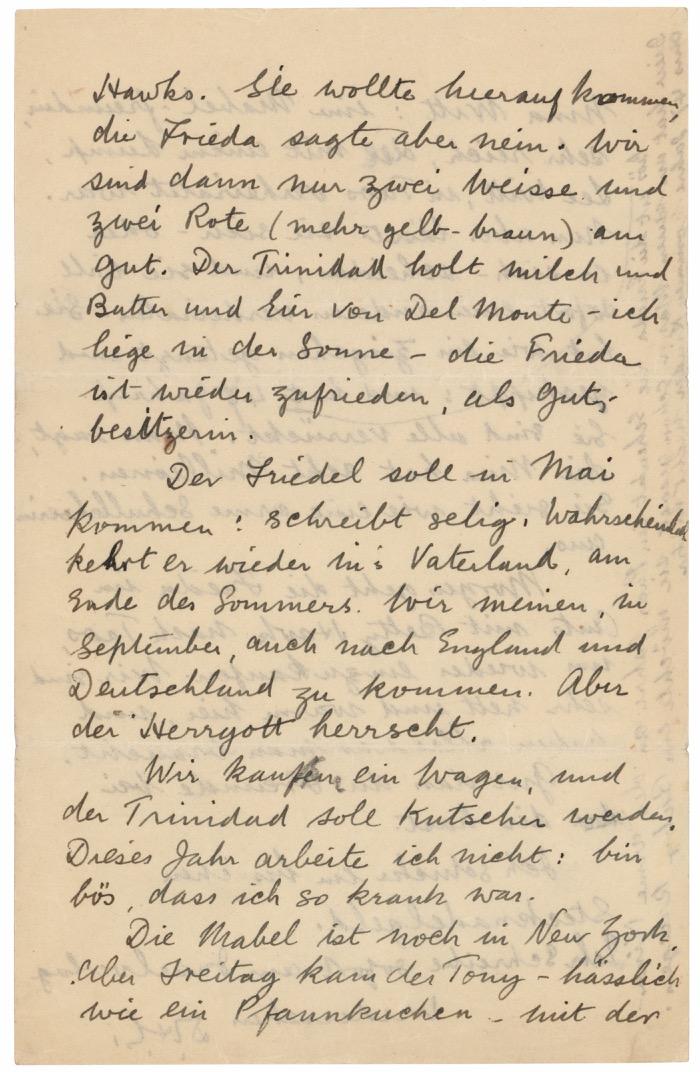 Hawks. Sie wollte hierauf kommen,
die Frieda sagte aber nein. Wir
sind dann nur zwei Weisse und
zwei Rote (mehr gelb-braun) am
Gut. Der Trinidad holt milch und
Butter und Eier von Del Monte - ich
liege in der Sonne - die Frieda
ist wieder zufrieden, als Guts-
besitzerin.
Der Friedel soll in Mai
kommen: schreibt selig. Wahrscheinlich
kehrt er wieder in's Vaterland, am
Ende des Sommers. Wir meinen, in
September, auch nach England und
Deutschland zu kommen. Aber
der Herrgott herrscht.
Wir kaufen ein Wagen, und
der Trinidad soll Kutscher werden.
Dieses Jahr arbeite ich nicht: bin
bös, dass ich so krank war.
Die Mabel ist noch in New York.
Aber Freitag kam der Tony - hässlich
wie ein Pfannkuchen - mit der